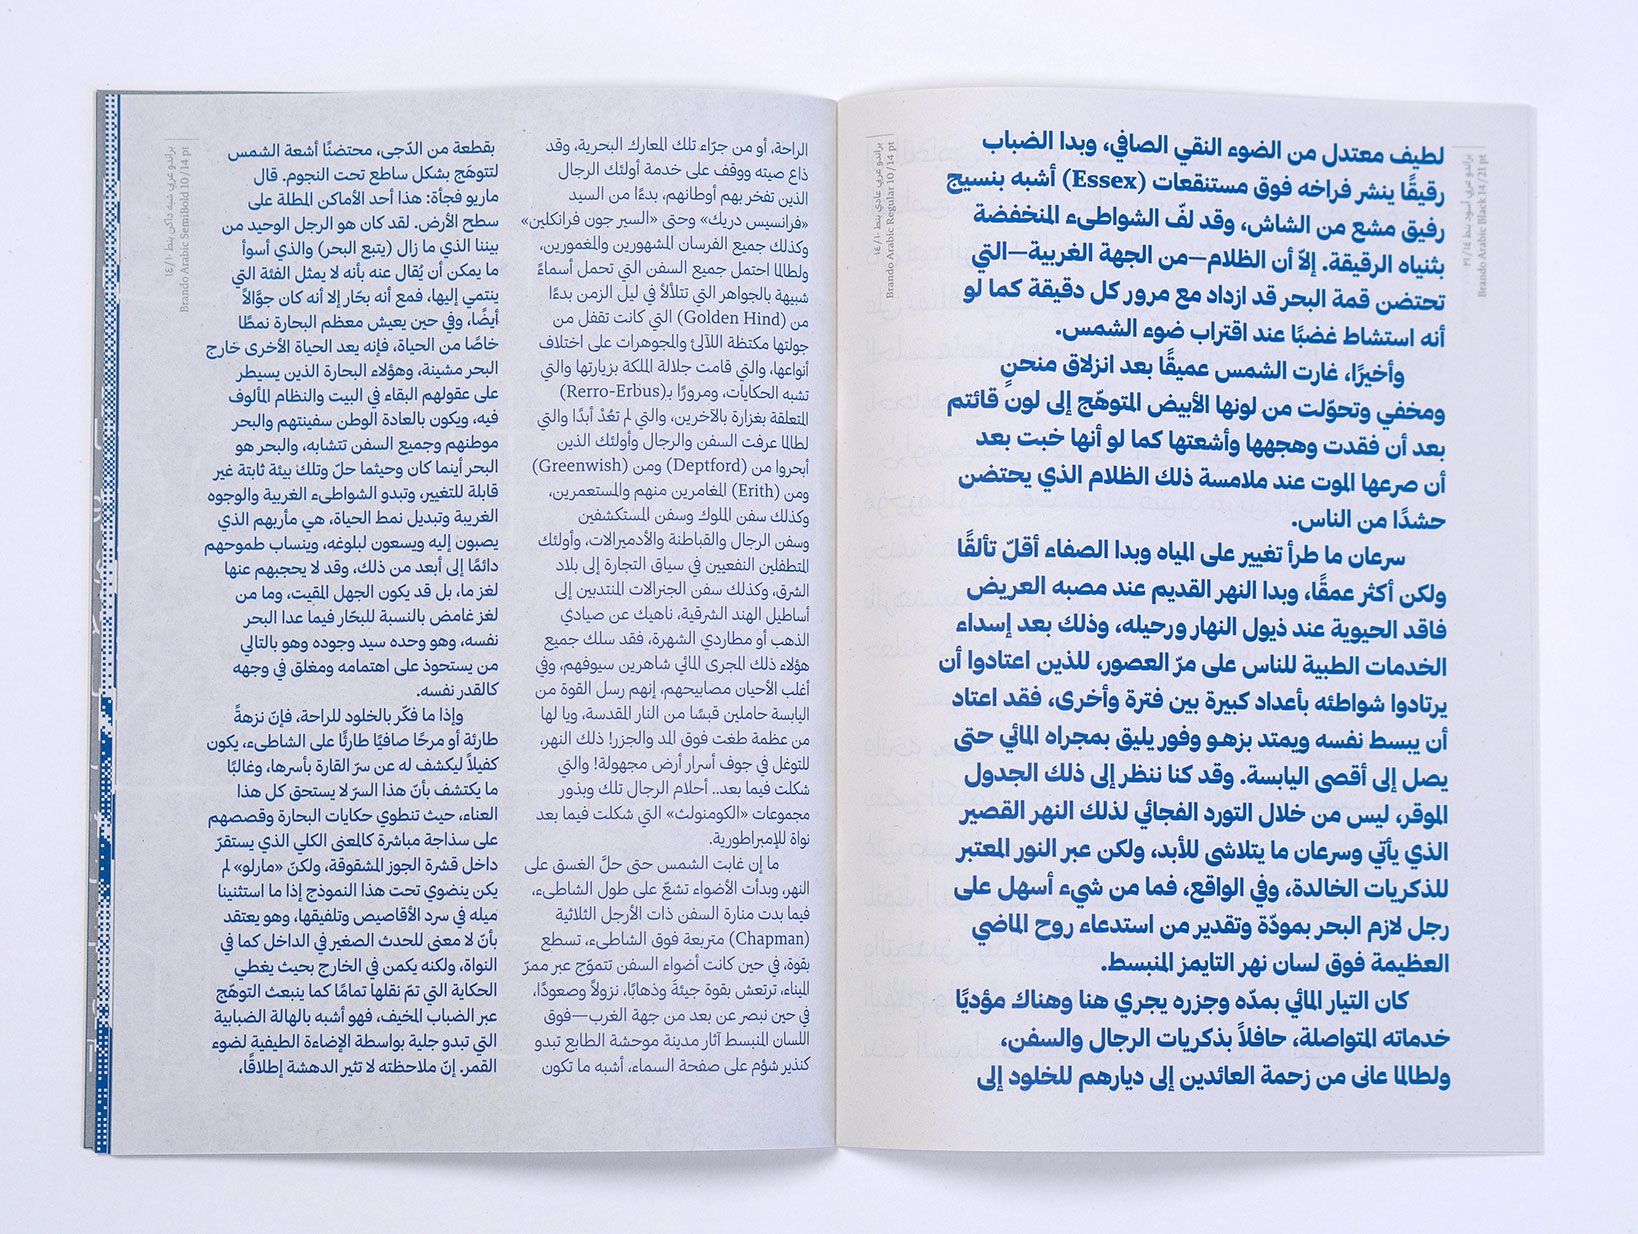 براندو عربي أسود بنط ١٤/٢١
Brando Arabic Black 14/21 pt
لطيف معتدل من الضوء النقي الصافي، وبدا الضباب
رقيقًا ينشر فراخه فوق مستنقعات (Essex) أشبه بنسيج
رفيق مشع من الشاش، وقد لفّ الشواطىء المنخفضة
بثنياه الرقيقة. إلاّ أن الظلام—من الجهة الغربية—التي
تحتضن قمة البحر قد ازداد مع مرور كل دقيقة كما لو
أنه استشاط غضبًا عند اقتراب ضوء الشمس.
وأخيرًا، غارت الشمس عميقًا بعد انزلاق منحنٍ
ومخفي وتحوّلت من لونها الأبيض المتوهّج إلى لون قائتم
بعد أن فقدت وهجهها وأشعتها كما لو أنها خبت بعد
أن صرعها الموت عند ملامسة ذلك الظلام الذي يحتضن
حشدًا من الناس.
سرعان ما طرأ تغيير على المياه وبدا الصفاء أقلّ تألقًا
ولكن أكثر عمقًا، وبدا النهر القديم عند مصبه العريض
فاقد الحيوية عند ذيول النهار ورحيله، وذلك بعد إسداء
الخدمات الطبية للناس على مرّ العصور، للذين اعتادوا أن
يرتادوا شواطئه بأعداد كبيرة بين فترة وأخرى، فقد اعتاد
أن يبسط نفسه ويمتد بزهو وفور يليق بمجراه المائي حتى
يصل إلى أقصى اليابسة. وقد كنا ننظر إلى ذلك الجدول
الموقر، ليس من خلال التورد الفجائي لذلك النهر القصير
الذي يأتي وسرعان ما يتلاشى للأبد، ولكن عبر النور المعتبر
للذكريات الخالدة، وفي الواقع، فما من شيء أسهل على
رجل لازم البحر بمودّة وتقدير من استدعاء روح الماضي
العظيمة فوق لسان نهر التايمز المنبسط.
كان التيار المائي بمدّه وجزره يجري هنا وهناك مؤديًا
خدماته المتواصلة، حافلاً بذكريات الرجال والسفن،
ولطالما عانى من زحمة العائدين إلى ديارهم للخلود إلى
براندو عربي عادي بنط ١٠/١٤
Brando Arabic Regular 10/14 pt
الراحة، أو من جرّاء تلك المعارك البحرية، وقد
ذاع صيته ووقف على خدمة أولئك الرجال
الذين تفخر بهم أوطانهم، بدءًا من السيد
«فرانسيس دريك» وحتى «السير جون فرانكلين»
وكذلك جميع الفرسان المشهورين والمغمورين،
ولطالما احتمل جميع السفن التي تحمل أسماءً
شبيهة بالجواهر التي تتلألأ في ليل الزمن بدءًا
من (Golden Hind) التي كانت تقفل من
جولتها مكتظة اللآلئ والمجوهرات على اختلاف
أنواعها، والتي قامت جلالة الملكة بزيارتها والتي
تشبه الحكايات، ومرورًا بـ(Rerro-Erbus)
المتعلقة بغزارة بالآخرين، والتي لم تعُدْ أبدًا والتي
لطالما عرفت السفن والرجال وأولئك الذين
أبحروا من (Deptford) ومن (Greenwish)
ومن (Erith) المغامرين منهم والمستعمرين،
وكذلك سفن الملوك وسفن المستكشفين
وسفن الرجال والقباطنة والأدميرالات، وأولئك
المتطفلين النفعيين في سياق التجارة إلى بلاد
الشرق، وكذلك سفن الجنرالات المنتدبين إلى
أساطيل الهند الشرقية، ناهيك عن صيادي
الذهب أو مطاردي الشهرة، فقد سلك جميع
هؤلاء ذلك المجرى المائي شاهرين سيوفهم، وفي
أغلب الأحيان مصابيحهم، إنهم رسل القوة من
اليابسة حاملين قبسًا من النار المقدسة، ويا لها
من عظمة طغت فوق المد والجزر! ذلك النهر،
للتوغل في جوف أسرار أرض مجهولة! والتي
شكلت فيما بعد.. أحلام الرجال تلك وبذور
مجموعات «الكومنولث» التي شكلت فيما بعد
نواة للإمبراطورية.
ما إن غابت الشمس حتى حلَّ الغسق على
النهر، وبدأت الأضواء تشعّ على طول الشاطىء،
فيما بدت منارة السفن ذات الأرجل الثلاثية
(Chapman) متربعة فوق الشاطىء، تسطع
بقوة، في حين كانت أضواء السفن تتموّج عبر ممرّ
الميناء، ترتعش بقوة جيئةً وذهابًا، نزولاً وصعودًا،
في حين نبصر عن بعد من جهة الغرب—فوق
اللسان المنبسط آثار مدينة موحشة الطابع تبدو
كنذير شؤم على صفحة السماء، أشبه ما تكون
براندو عربي شبه داكن بنط ١٠/١٤
Brando Arabic SemiBold 10/14 pt
بقطعة من الدّجى، محتضنًا أشعة الشمس
لتتوهّج بشكل ساطع تحت النجوم. قال
ماريو فجأة: هذا أحد الأماكن المطلة على
سطح الأرض. لقد كان هو الرجل الوحيد من
بيننا الذي ما زال (يتبع البحر) والذي أسوأ
ما يمكن أن يُقال عنه بأنه لا يمثل الفئة التي
ينتمي إليها، فمع أنه بحّار إلا أنه كان جوَّالاً
أيضًا، وفي حين يعيش معظم البحارة نمطًا
خاصًا من الحياة، فإنه يعد الحياة الأخرى خارج
البحر مشينة، وهؤلاء البحارة الذين يسيطر
على عقولهم البقاء في البيت والنظام المألوف
فيه، ويكون بالعادة الوطن سفينتهم والبحر
موطنهم وجميع السفن تتشابه، والبحر هو
البحر أينما كان وحيثما حلّ وتلك بيئة ثابتة غير
قابلة للتغيير، وتبدو الشواطىء الغربية والوجوه
الغريبة وتبديل نمط الحياة، هي مأربهم الذي
يصبون إليه ويسعون لبلوغه، وينساب طموحهم
دائمًا إلى أبعد من ذلك، وقد لا يحجبهم عنها
لغز ما، بل قد يكون الجهل المقيت، وما من
لغز غامض بالنسبة للبحّار فيما عدا البحر
نفسه، وهو وحده سيد وجوده وهو بالتالي
من يستحوذ على اهتمامه ومغلق في وجهه
كالقدر نفسه.
وإذا ما فكّر بالخلود للراحة، فإنّ نزهةً
طارئة أو مرحًا صافيًا طارئًا على الشاطىء، يكون
كفيلاً ليكشف له عن سرّ القارة بأسرها، وغالبًا
ما يكتشف بأنّ هذا السرّ لا يستحق كل هذا
العناء، حيث تنطوي حكايات البحارة وقصصهم
على سذاجة مباشرة كالمعنى الكلي الذي يستقرّ
داخل قشرة الجوز المشقوقة، ولكنّ «مارلو» لم
يكن ينضوي تحت هذا النموذج إذا ما استثنينا
ميله في سرد الأقاصيص وتلفيقها، وهو يعتقد
بأنّ لا معنى للحدث الصغير في الداخل كما في
النواة، ولكنه يكمن في الخارج بحيث يغطي
الحكاية التي تمّ نقلها تمامًا كما ينبعث التوهّج
عبر الضباب المخيف، فهو أشبه بالهالة الضبابية
التي تبدو جلية بواسطة الإضاءة الطيفية لضوء
القمر. إنّ ملاحظته لا تثير الدهشة إطلاقًا،